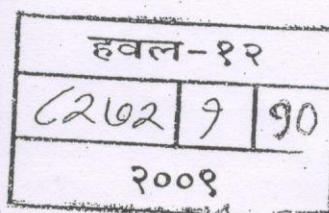 हवल-१२
८२७२ १ १०
२००९